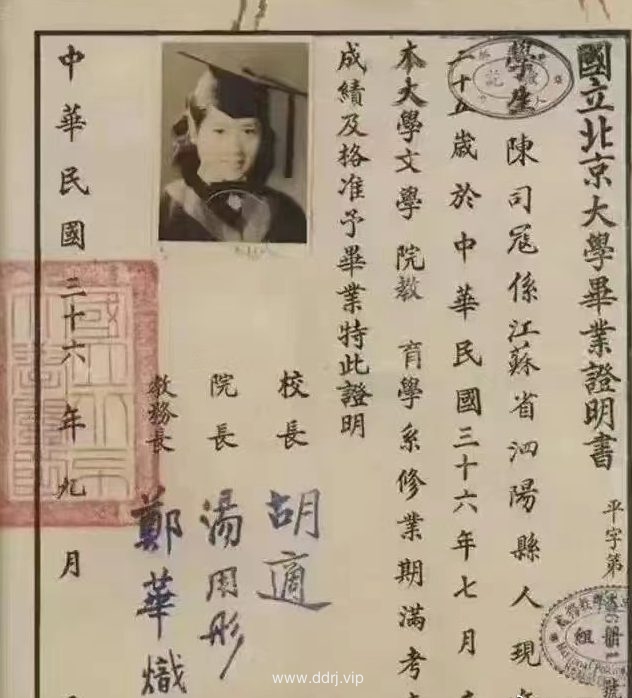 國立北京大學畢業證明書
平字第 號
學生陳司冦係江蘇省泗陽縣人現
二十五歲於中華民國三十六年七月
本大學文學院教育學系修業期滿考
成績及格准予畢業特此證明
校長 胡適
院長 湯用彤
教務長 鄭華熾
中華民國三十六年九月
www.ddrj.vip